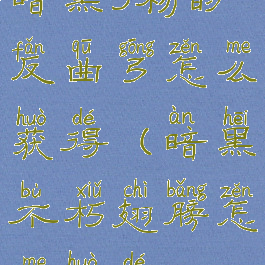 暗黑 的
fǎn qū gōng zěn me
反曲弓怎么
huò dé àn hēi
获得（暗黑
bù xiǔ chì bǎng zěn
不朽翅膀怎
me huò dé